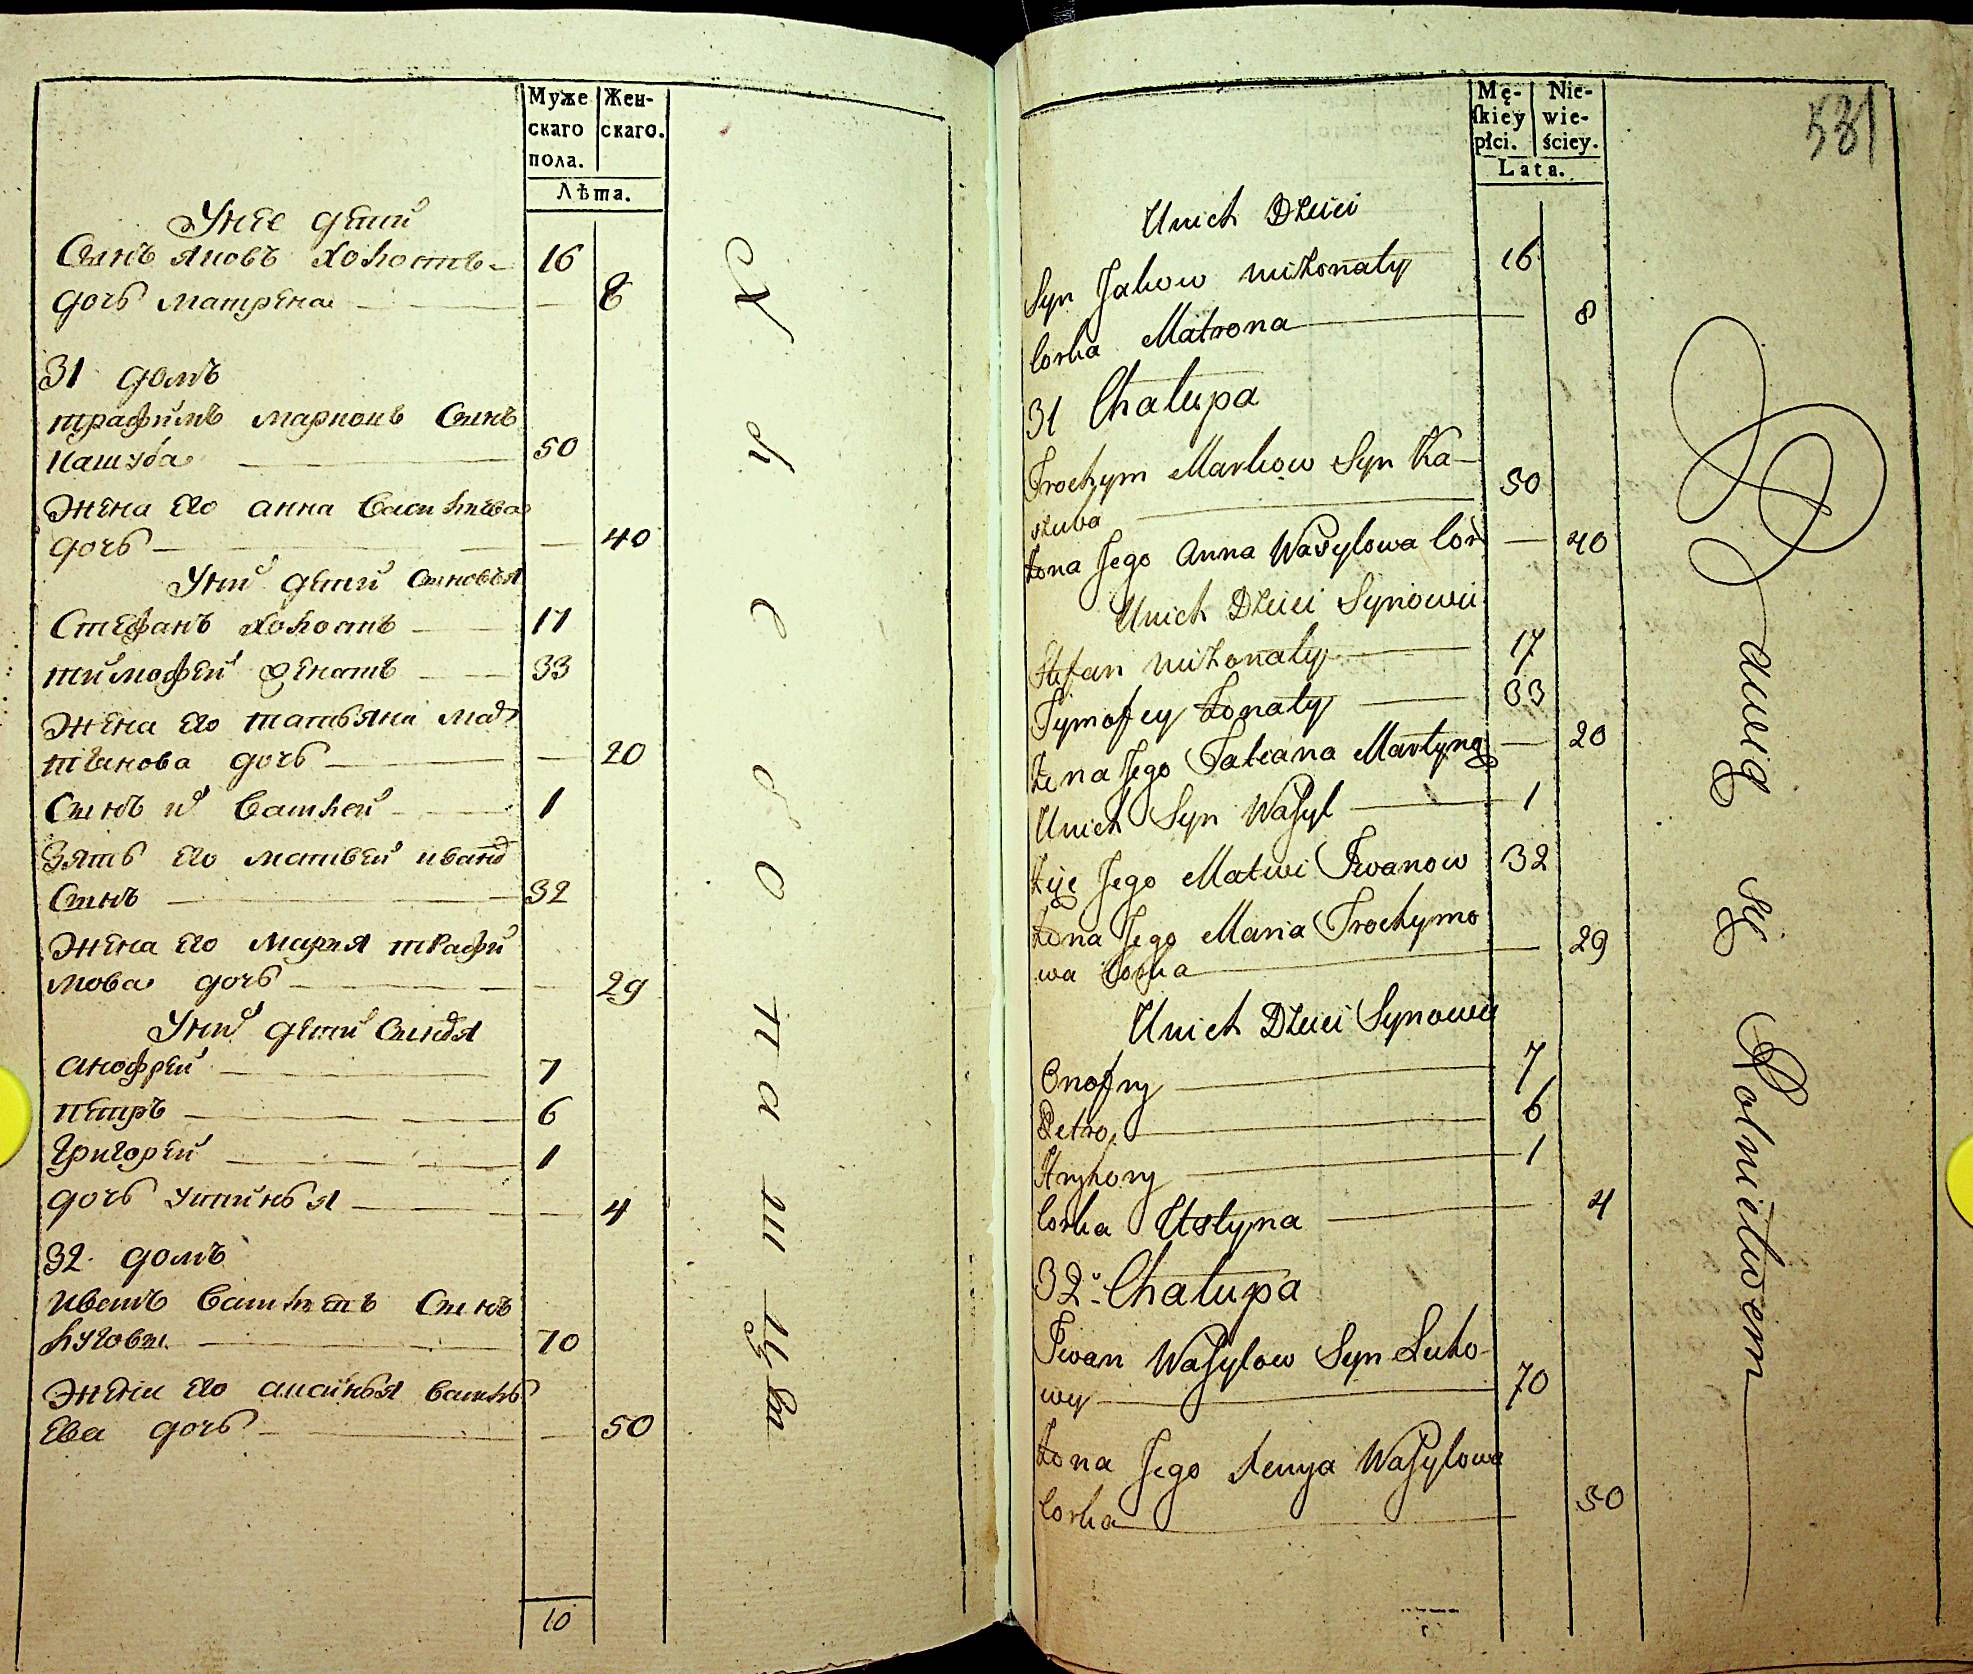 Муже
скаго
пола.
Жен-
скаго.
Лѣта.
Унее дети
Сынъ яковъ холостъ 16
дочь матрена 8
31 домъ
трафимъ марковъ Сынъ
кашуба 50
Жена его анна Василева
дочь 40
Уних дети Сыновья
Стефанъ холостъ 17
тимофей женатъ 33
Жена его татьяна мар
тинова дочь 20
Сынъ их Василей 1
Зять его матвей иванов
Сынъ 32
Жена его Мария трафи
мова дочь 29
Уних дети Синовья
анофрей 7
петръ 6
Григорей 1
дочь устинья 4
32 домъ
иванъ Васильевъ Сынъ
луговы 70
Жена его аксинья василь
ева дочь 50
10
Хлеборашцы
Mę-
skiey
płci.
Nie-
wie-
ściey.
Lata.
581
Unich Dzieci
Syn Jakow niżonaty 16
Corka Matrona 8
31 Chałupa
Trochym Markow Syn Ka-
szuba 50
żona Jego Anna Wasylowa Cor 40
Unich Dzieci Synowie
Stefan niżonaty 17
Tymofey żonaty 33
żena Jego Tatiana Martyno 20
Unich Syn Wasyl 1
Zięc Jego Matwi Iwanow 32
żona Jego Maria Trochymo
wa Corka 29
Unich Dzieci Synowie
Onofry 7
Petro 6
Hryhory 1
Corka Ustyna 4
32. Chałupa
Iwan Wasylow Syn Luho-
wy 70
żona Jego Xenya Wasylowa
Corka 50
Bawią się Rolnictwem